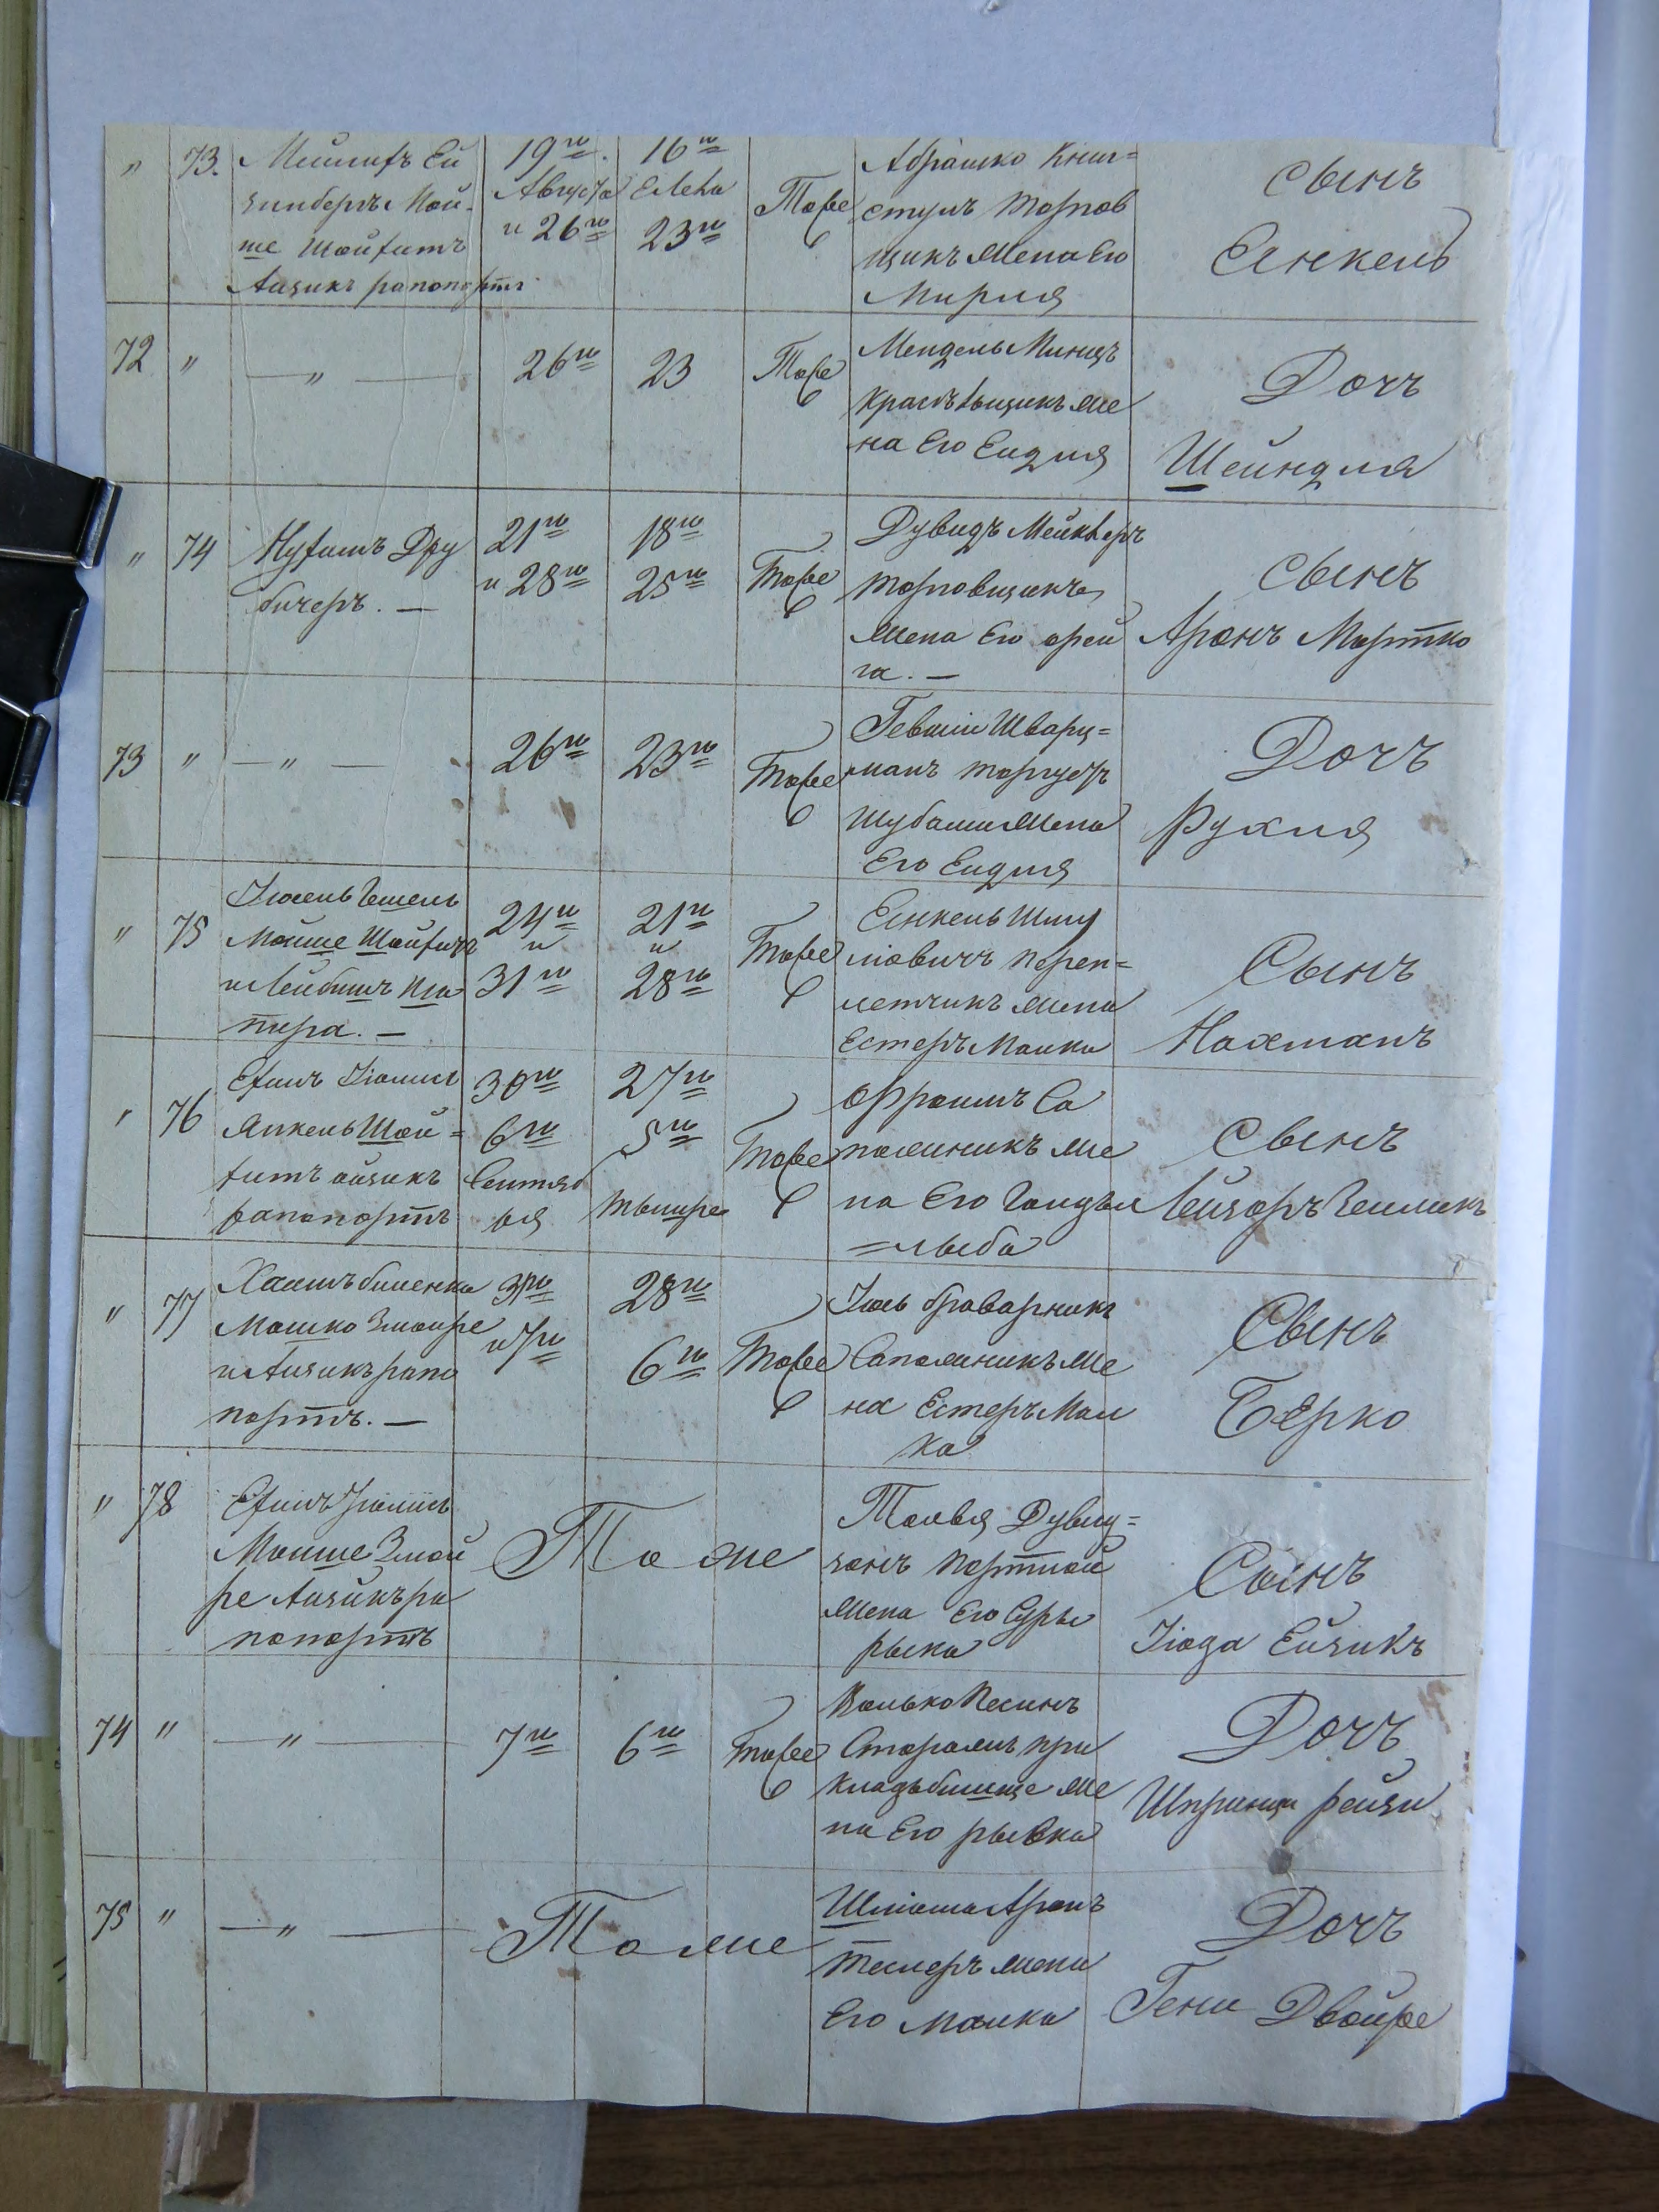 " 73. Ей
зинберъ Мой-
ше Шойхитъ
Аизикъ рапопортъ
19го. Августа и 26го
16го Елева 23го
Тоже
Абрашко
стулъ торгов
щикъ Жена Его
Мирля
Сынъ
Еянкель
72 " — " —
26го
23
Тоже
Мендель Минцъ
Же
на Его Ендля
Дочъ
Шейндля
" 74 Нухимъ Дру
бичеръ. —
21го и 28го
18го 25го
Тоже
Дувидъ
торговщикъ
Жена Его фрей
га. —
Сынъ
Аронъ Мортко
73 " — " —
26го
23го
Тоже
Гевши Шварц=
манъ торгуетъ
Шубами Жена
Его Ендля
Дочъ
Рухля
" 75
Мойше Шойхитъ
и Лейбишъ
пира. —
24го и 31го
21го и 28го
Тоже
Еянкель Шму
ловичъ переп=
летчикъ Жена
Естеръ Малка
Сынъ
Нахманъ
" 76 Ефимъ
Янкель Шой=
хитъ айзикъ
рапопортъ
30го 6го Сентяб
ря
27го 5го Тышре
Тоже
Фроимъ Са
пожникъ Же
на Его
Сынъ
Лейзоръ Зейликъ
" 77 Хаимъ
Мошко Змойре
и Аизикъ рапо
портъ. —
31го и 7го
28го 6го
Тоже
Іось броварникъ
Сапожникъ Же
на Естеръ Мал
ка
Сынъ
Берко
" 78 Ефимъ
Мойше Змой
ре Аизикъ ра
попортъ
Тоже
Дувид=
зонъ Портной
Жена Его Суры
рыска
Сынъ
Іода Ейзикъ
74 " — " —
7го
6го
Тоже
Сторожъ при
кладъбище Же
на Его рывка
Дочъ
Шпринца рейзи
75 " — " —
Тоже
Аронъ
теслеръ жена
Его малка
Дочъ
Гени Двойре